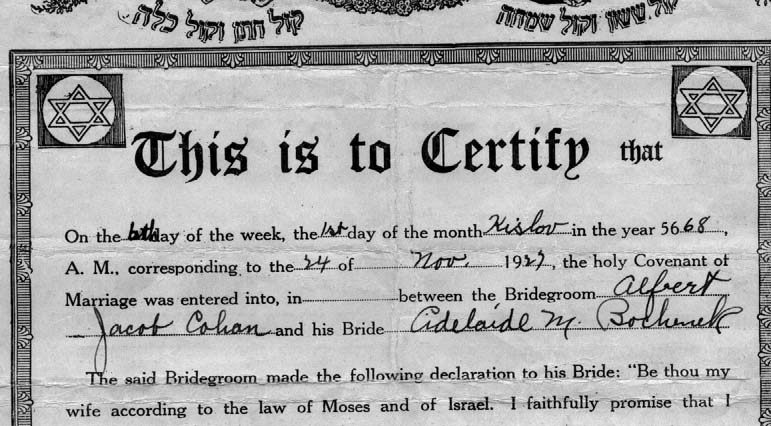 קול ששון וקול שמחה
קול חתן וקול כלה
This is to Certify that
On the 6th day of the week, the 1st day of the month Kislov in the year 5668,
A. M., corresponding to the 24 of Nov. 1927, the holy Covenant of
Marriage was entered into, in between the Bridegroom Alfert
Jacob Cohan and his Bride Adelaide M. Bochenek
The said Bridegroom made the following declaration to his Bride: "Be thou my
wife according to the law of Moses and of Israel. I faithfully promise that I